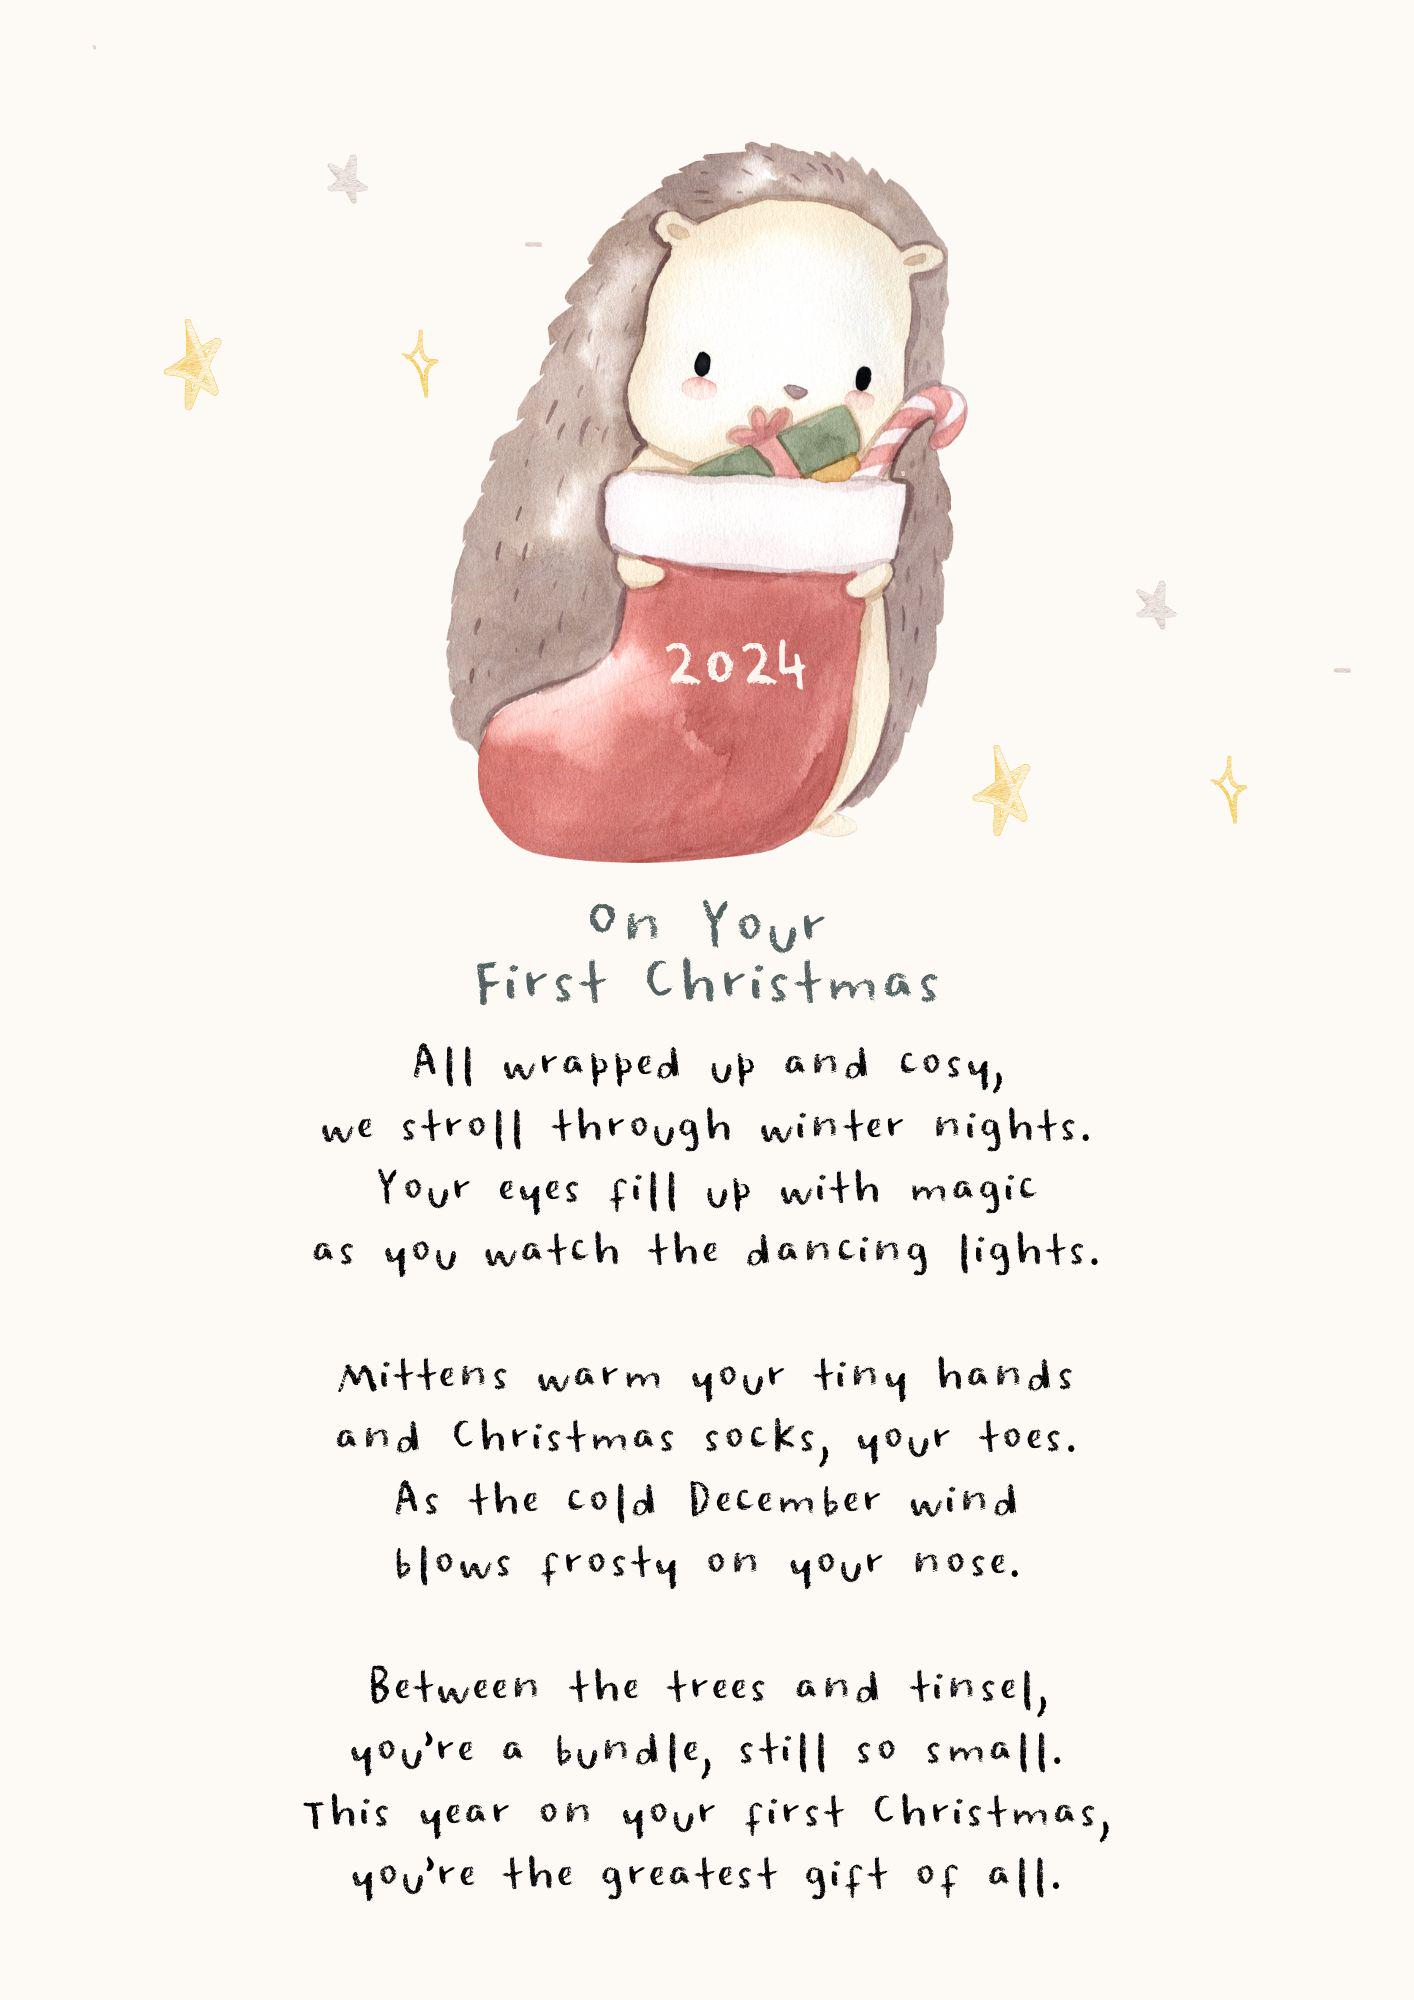 2024
On Your
First Christmas
All wrapped up and cosy,
we stroll through winter nights.
Your eyes fill up with magic
as you watch the dancing lights.
Mittens warm your tiny hands
and Christmas socks, your toes.
As the cold December wind
blows frosty on your nose.
Between the trees and tinsel,
you're a bundle, still so small.
This year on your first Christmas,
you're the greatest gift of all.